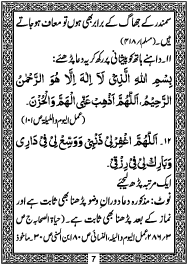 سمندر کے جھاگ کے برابر بھی ہوں تو معاف ہو جاتے
ہیں۔ (مسلم: ۴۱۸/۱)
۱۱۔ داہنے ہاتھ کو پیشانی پر رکھ کر یہ دعا پڑھئے:
بِسْمِ اللهِ الَّذِيْ لَآ اِلٰهَ اِلَّا هُوَ الرَّحْمٰنُ
الرَّحِيْمُ، اَللّٰهُمَّ اَذْهِبْ عَنِّي الْهَمَّ وَالْحُزْنَ.
(عمل الیوم واللیلہ ص ۱۰۱)
۱۲۔ اَللّٰهُمَّ اغْفِرْلِيْ ذَنْۢبِيْ وَوَسِّعْ لِيْ فِيْ دَارِيْ
وَبَارِكْ لِيْ فِيْ رِزْقِيْ.
ایک مرتبہ پڑھ لیجئے
نوٹ: مذکورہ دعا دورانِ وضو پڑھنا بھی ثابت ہے اور
نماز کے بعد پڑھنا بھی ثابت ہے۔ (حیاۃ الصحابہ ج ص
عمل الیوم واللیلہ، النسائی ص ۸۰ ابن السنی ص ۳۰۔ ماخوذ
7